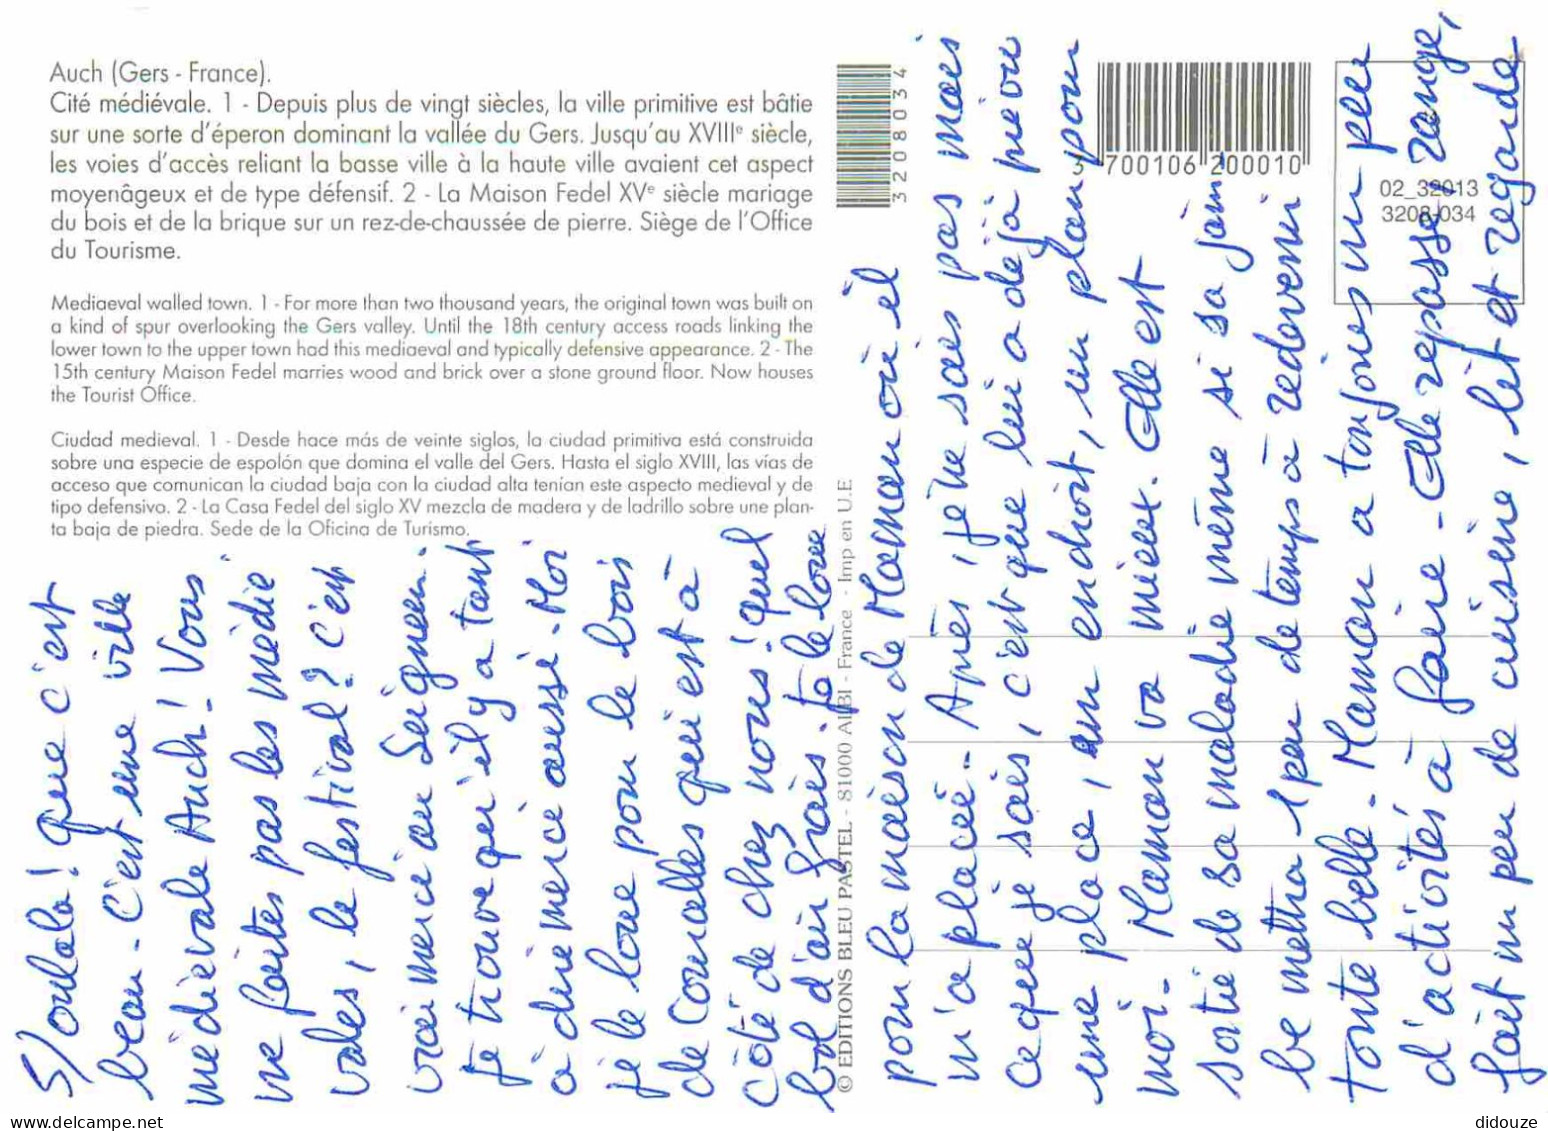 Auch (Gers - France).
Cité médiévale. 1 - Depuis plus de vingt siècles, la ville primitive est bâtie
sur une sorte d'éperon dominant la vallée du Gers. Jusqu'au XVIIIe siècle,
les voies d'accès reliant la basse ville à la haute ville avaient cet aspect
moyenâgeux et de type défensif. 2 - La Maison Fedel XVe siècle mariage
du bois et de la brique sur un rez-de-chaussée de pierre. Siège de l'Office
du Tourisme.
Mediaeval walled town. 1 - For more than two thousand years, the original town was built on
a kind of spur overlooking the Gers valley. Until the 18th century access roads linking the
lower town to the upper town had this mediaeval and typically defensive appearance. 2 - The
15th century Maison Fedel marries wood and brick over a stone ground floor. Now houses
the Tourist Office.
Ciudad medieval. 1 - Desde hace más de veinte siglos, la ciudad primitiva está construida
sobre una especie de espolón que domina el valle del Gers. Hasta el siglo XVIII, las vías de
acceso que comunican la ciudad baja con la ciudad alta tenían este aspecto medieval y de
tipo defensivo. 2 - La Casa Fedel del siglo XV mezcla de madera y de ladrillo sobre une plan-
ta baja de piedra. Sede de la Oficina de Turismo.
5/ oulala! que c'est
beau - C'est une ville
médiévale Auch! Vous
ne faites pas les médié
vales, le festival? C'est
vraiment au Seigneur.
je trouve qu'il y a tant
à dire merci aussi - Moi
je le loue pour le bois
de Cornalles qui est à
côté de chez nous! quel
bol d'air frais. Je le loue
© EDITIONS BLEU PASTEL - 81000 ALBI - France - Imp en U.E
3208034
700106 200010
02_32013
3208-034
pour la maison de Maman où il
m'a placée - Après, je ne sais pas mais
ce que je sais, c'est que lui a déjà prévu
une place, un endroit, un plan pour
moi - Maman va mieux. Elle est
sortie de sa maladie même si sa jambe
be mettra 1 peu de temps à redevenir
toute belle - Maman a toujours un peu
d'activités à faire - Elle repasse, range,
fait un peu de cuisine, lit et regarde
didouze
www.delcampe.net